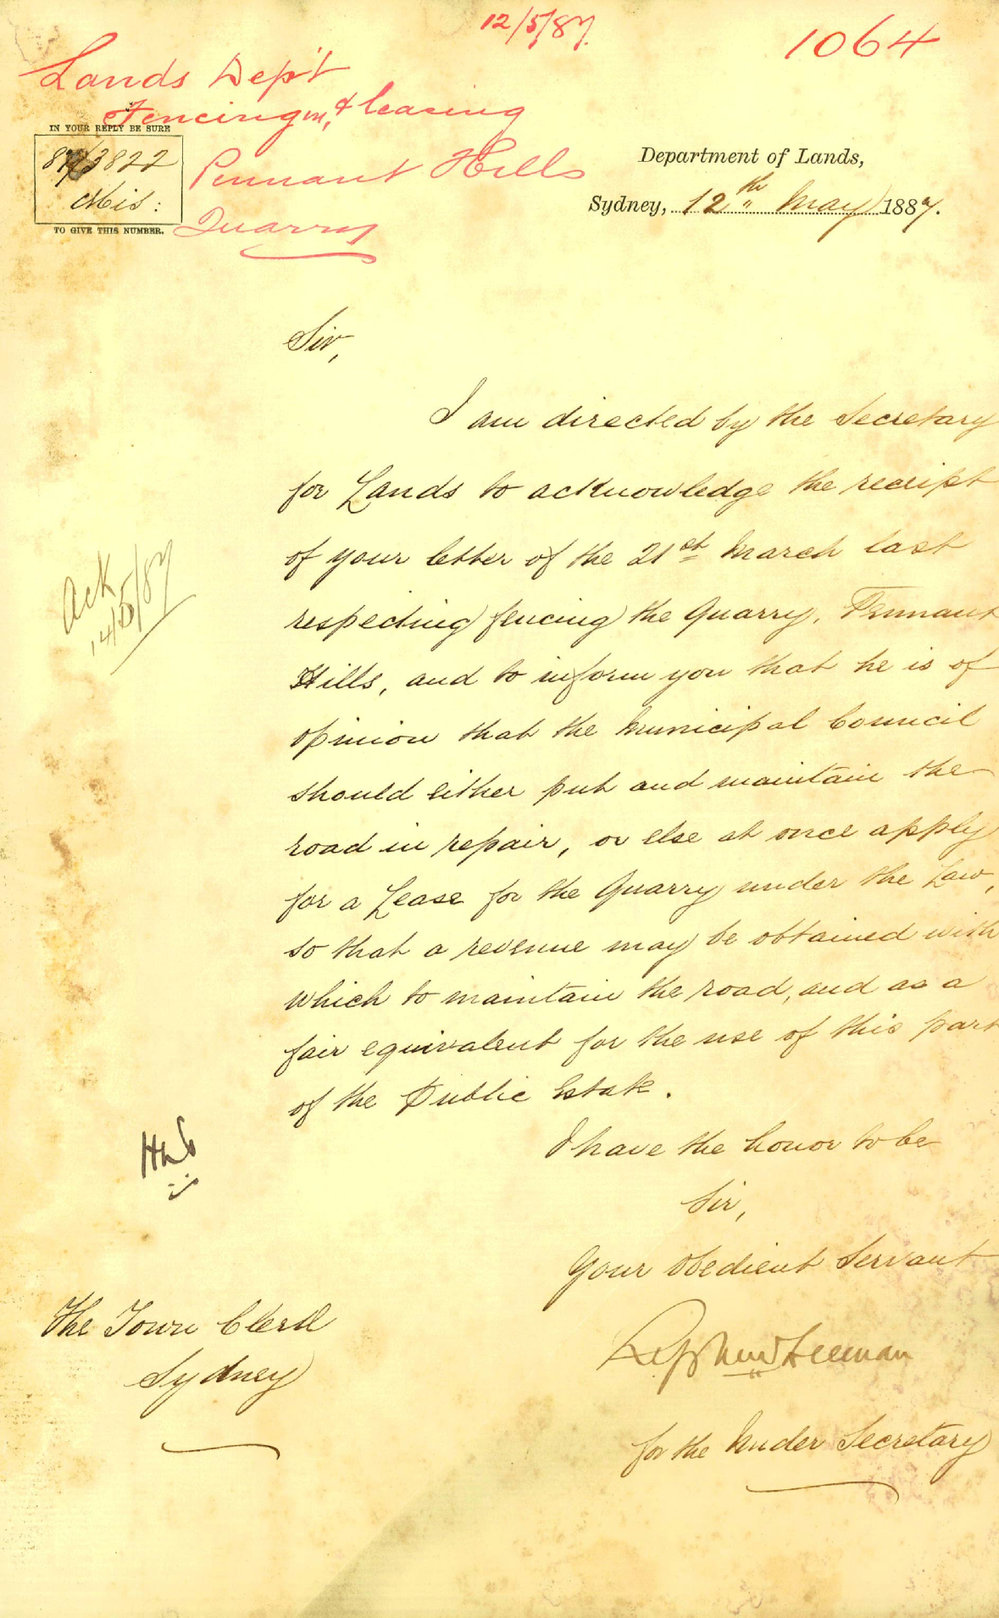 12/5/87.
1064
Lands Dep't
Fencing in, & leasing
Pennant Hills
Quarry
IN YOUR REPLY BE SURE
87/3822
Mis:
TO GIVE THIS NUMBER.
Department of Lands,
Sydney, 12th May 1887.
Sir,
I am directed by the Secretary
for Lands to acknowledge the receipt
of your letter of the 21st March last
respecting fencing the Quarry, Pennant
Hills, and to inform you that he is of
opinion that the Municipal Council
should either put and maintain the
road in repair, or else at once apply
for a Lease for the Quarry under the Law,
so that a revenue may be obtained with
which to maintain the road, and as a
fair equivalent for the use of this part
of the Public Estate.
I have the honor to be
Sir,
Your Obedient Servant
for the Under Secretary
The Town Clerk
Sydney
Ack
14/5/87